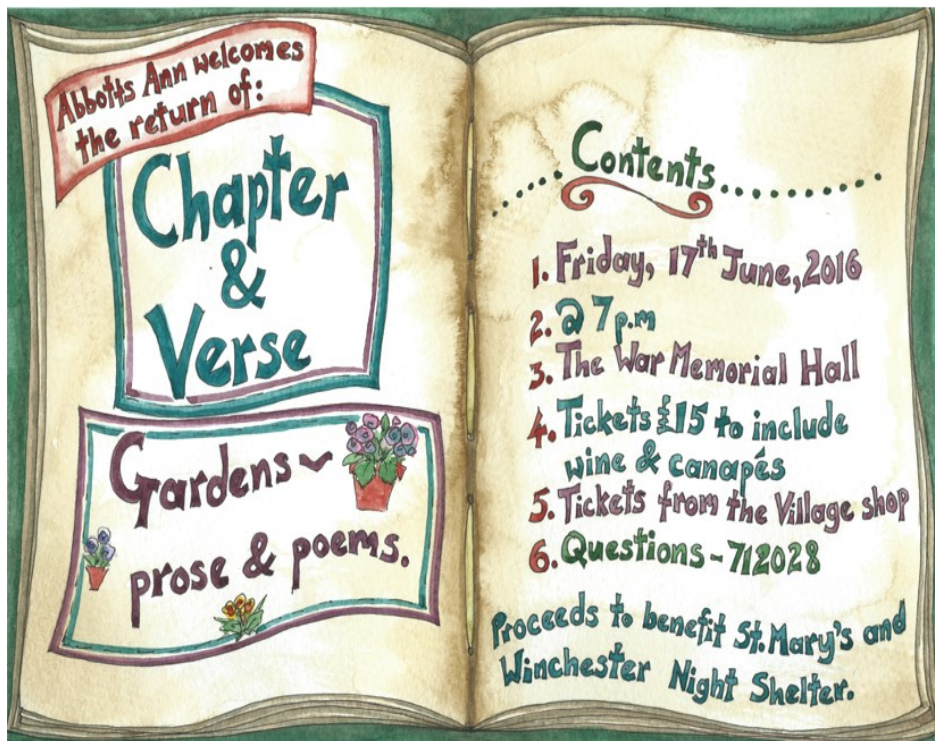 Abbotts Ann welcomes
the return of:
Chapter
&
Verse
Gardens~
prose & poems.
Contents
1. Friday, 17th June, 2016
2. @ 7p.m
3. The War Memorial Hall
4. Tickets £15 to include
wine & canapés
5. Tickets from the Village shop
6. Questions - 712028
Proceeds to benefit St. Mary's and
Winchester Night Shelter.